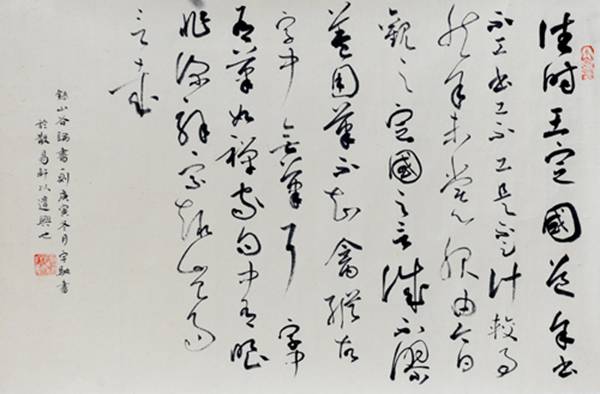 往時王定國道余書
不工書工不工是不足計較事
然余未嘗心服由今日
觀之定國之言誠不謬
蓋用筆不知禽縱故
字中無筆耳字中
有筆如禪家句中有眼
非深解宗趣豈易
言哉
錄山谷論書一則庚寅冬月宇馳書
於散易軒以遣興也